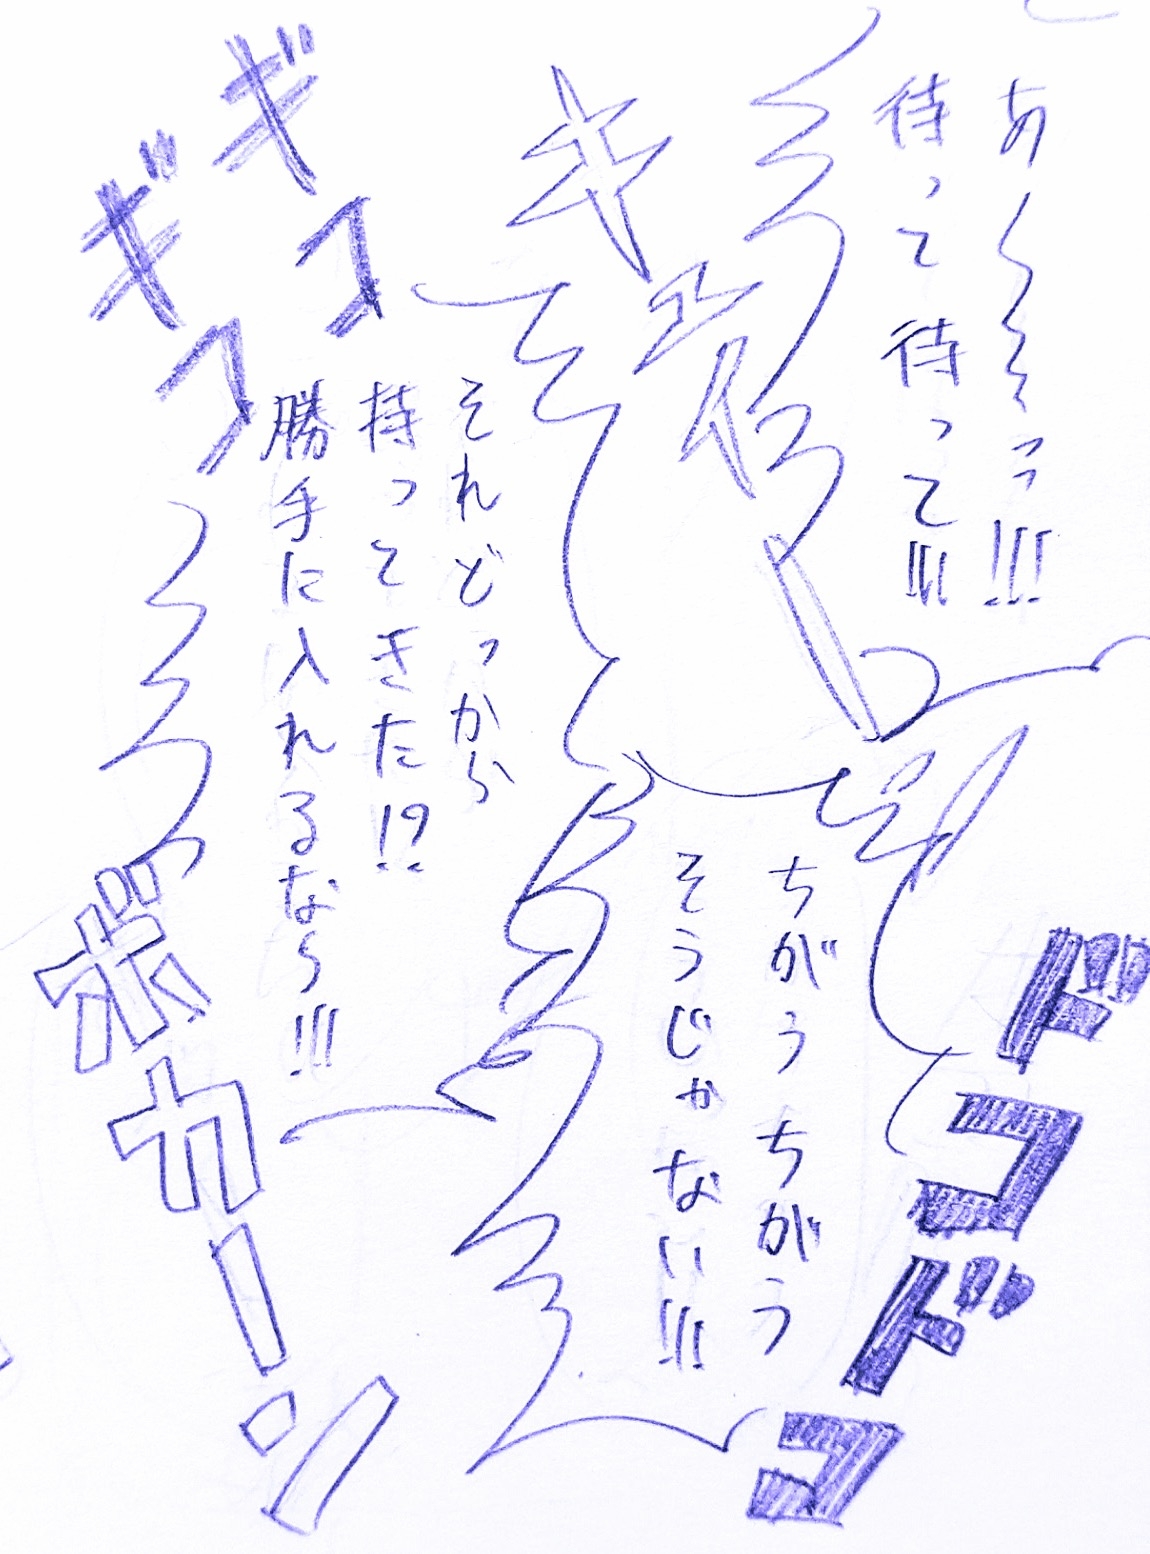 あ〜〜〜〜っ!!!
待って待って!!!
キャーン
ドコドコ
ちがうちがう
そうじゃない!!!
それどっから
持ってきた!?
勝手に入れるなら!!!
ギコギコ
ボカーン